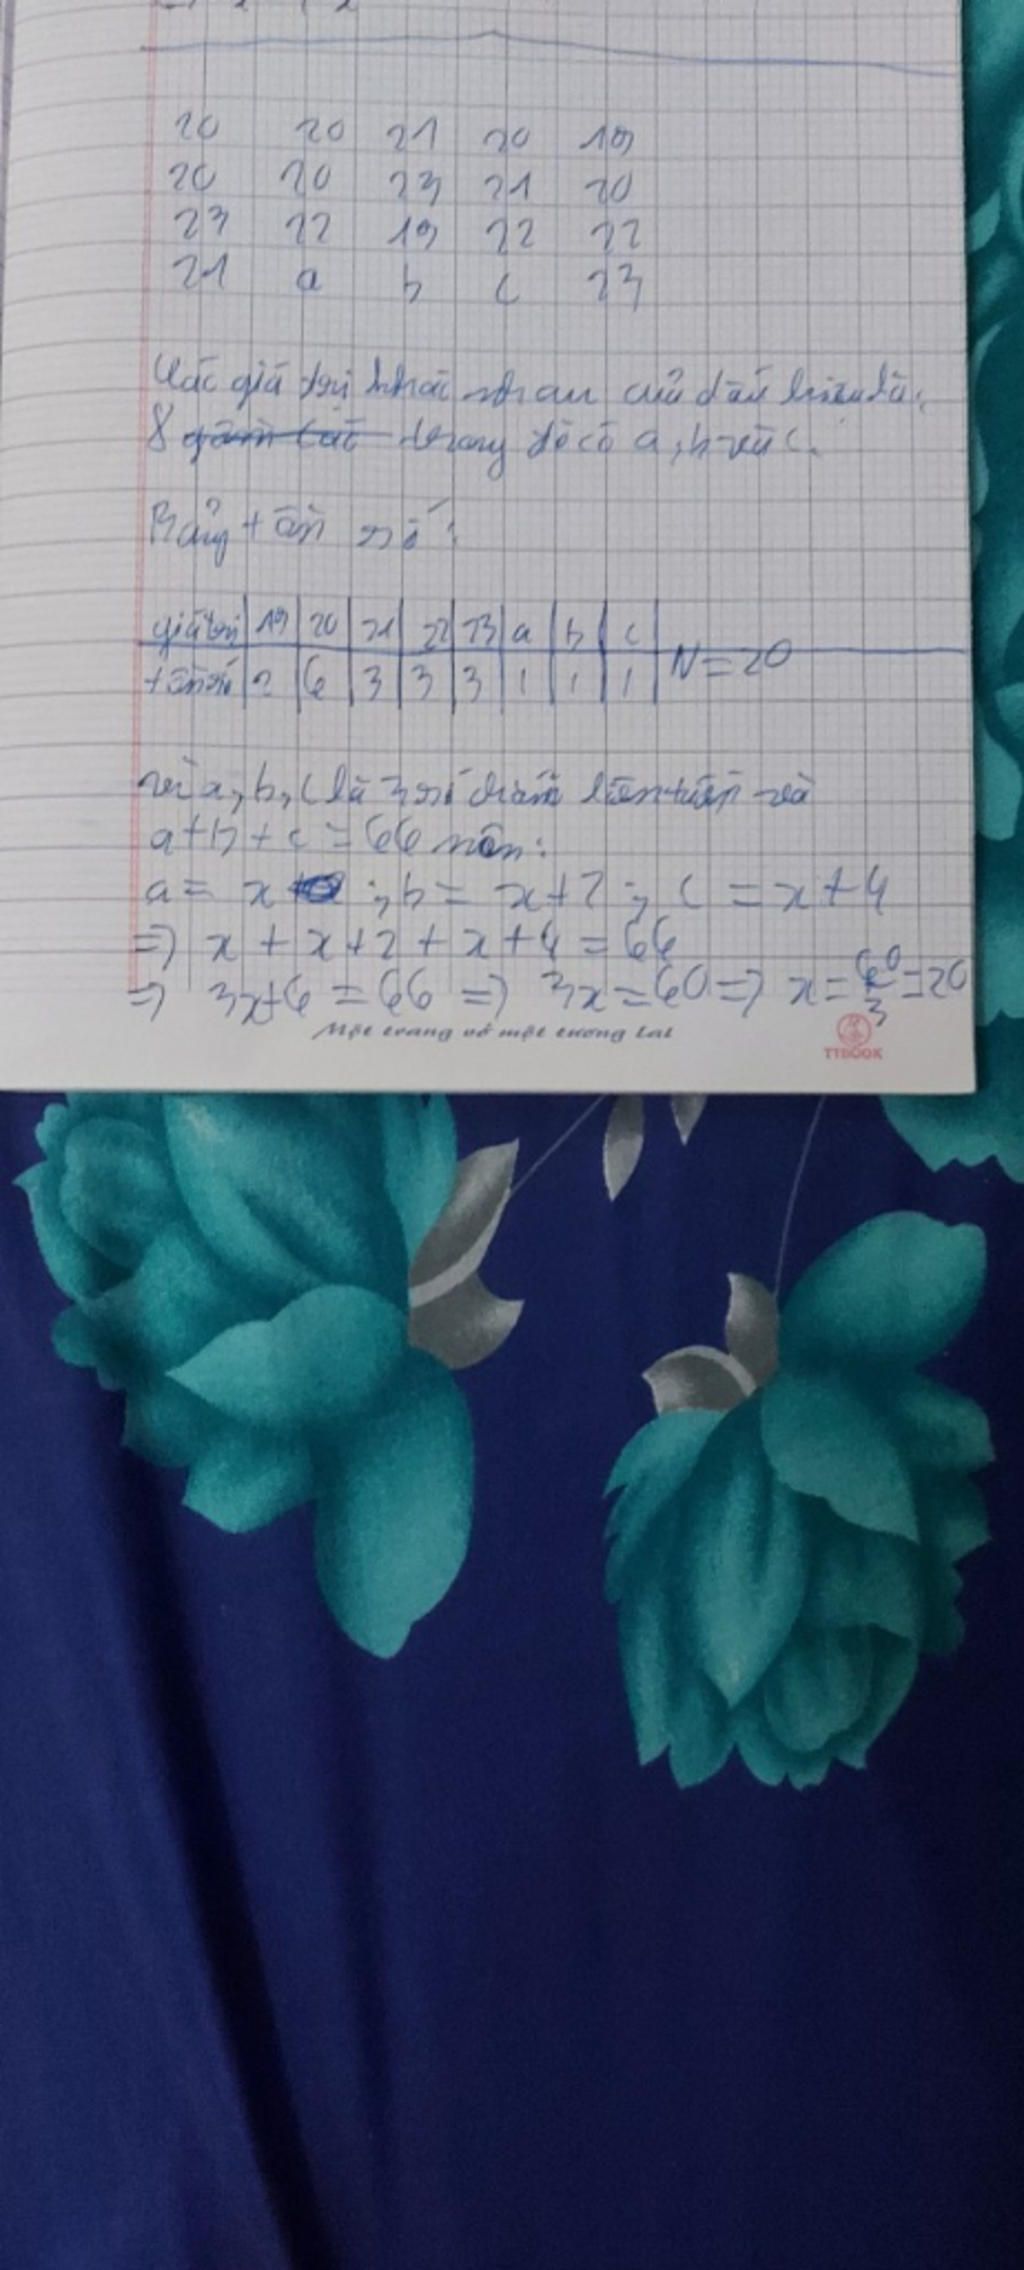 20 20 21 20 19
20 20 23 21 20
23 22 19 22 22
21 a b c 23
Các giá trị khác nhau của dấu hiệu là:
8 trong đó có a, b và c.
Bảng tần số:
giá trị 19 20 21 22 23 a b c
N = 20
tần số 2 6 3 3 3 1 1 1
vì a, b, c là 3 số chẵn liên tiếp và
a + b + c = 66 nên:
a = x ; b = x + 2 ; c = x + 4
=> x + x + 2 + x + 4 = 66
=> 3x + 6 = 66 => 3x = 60 => x = 60/3 = 20
Một trang vở một tương lai
TTBOOK